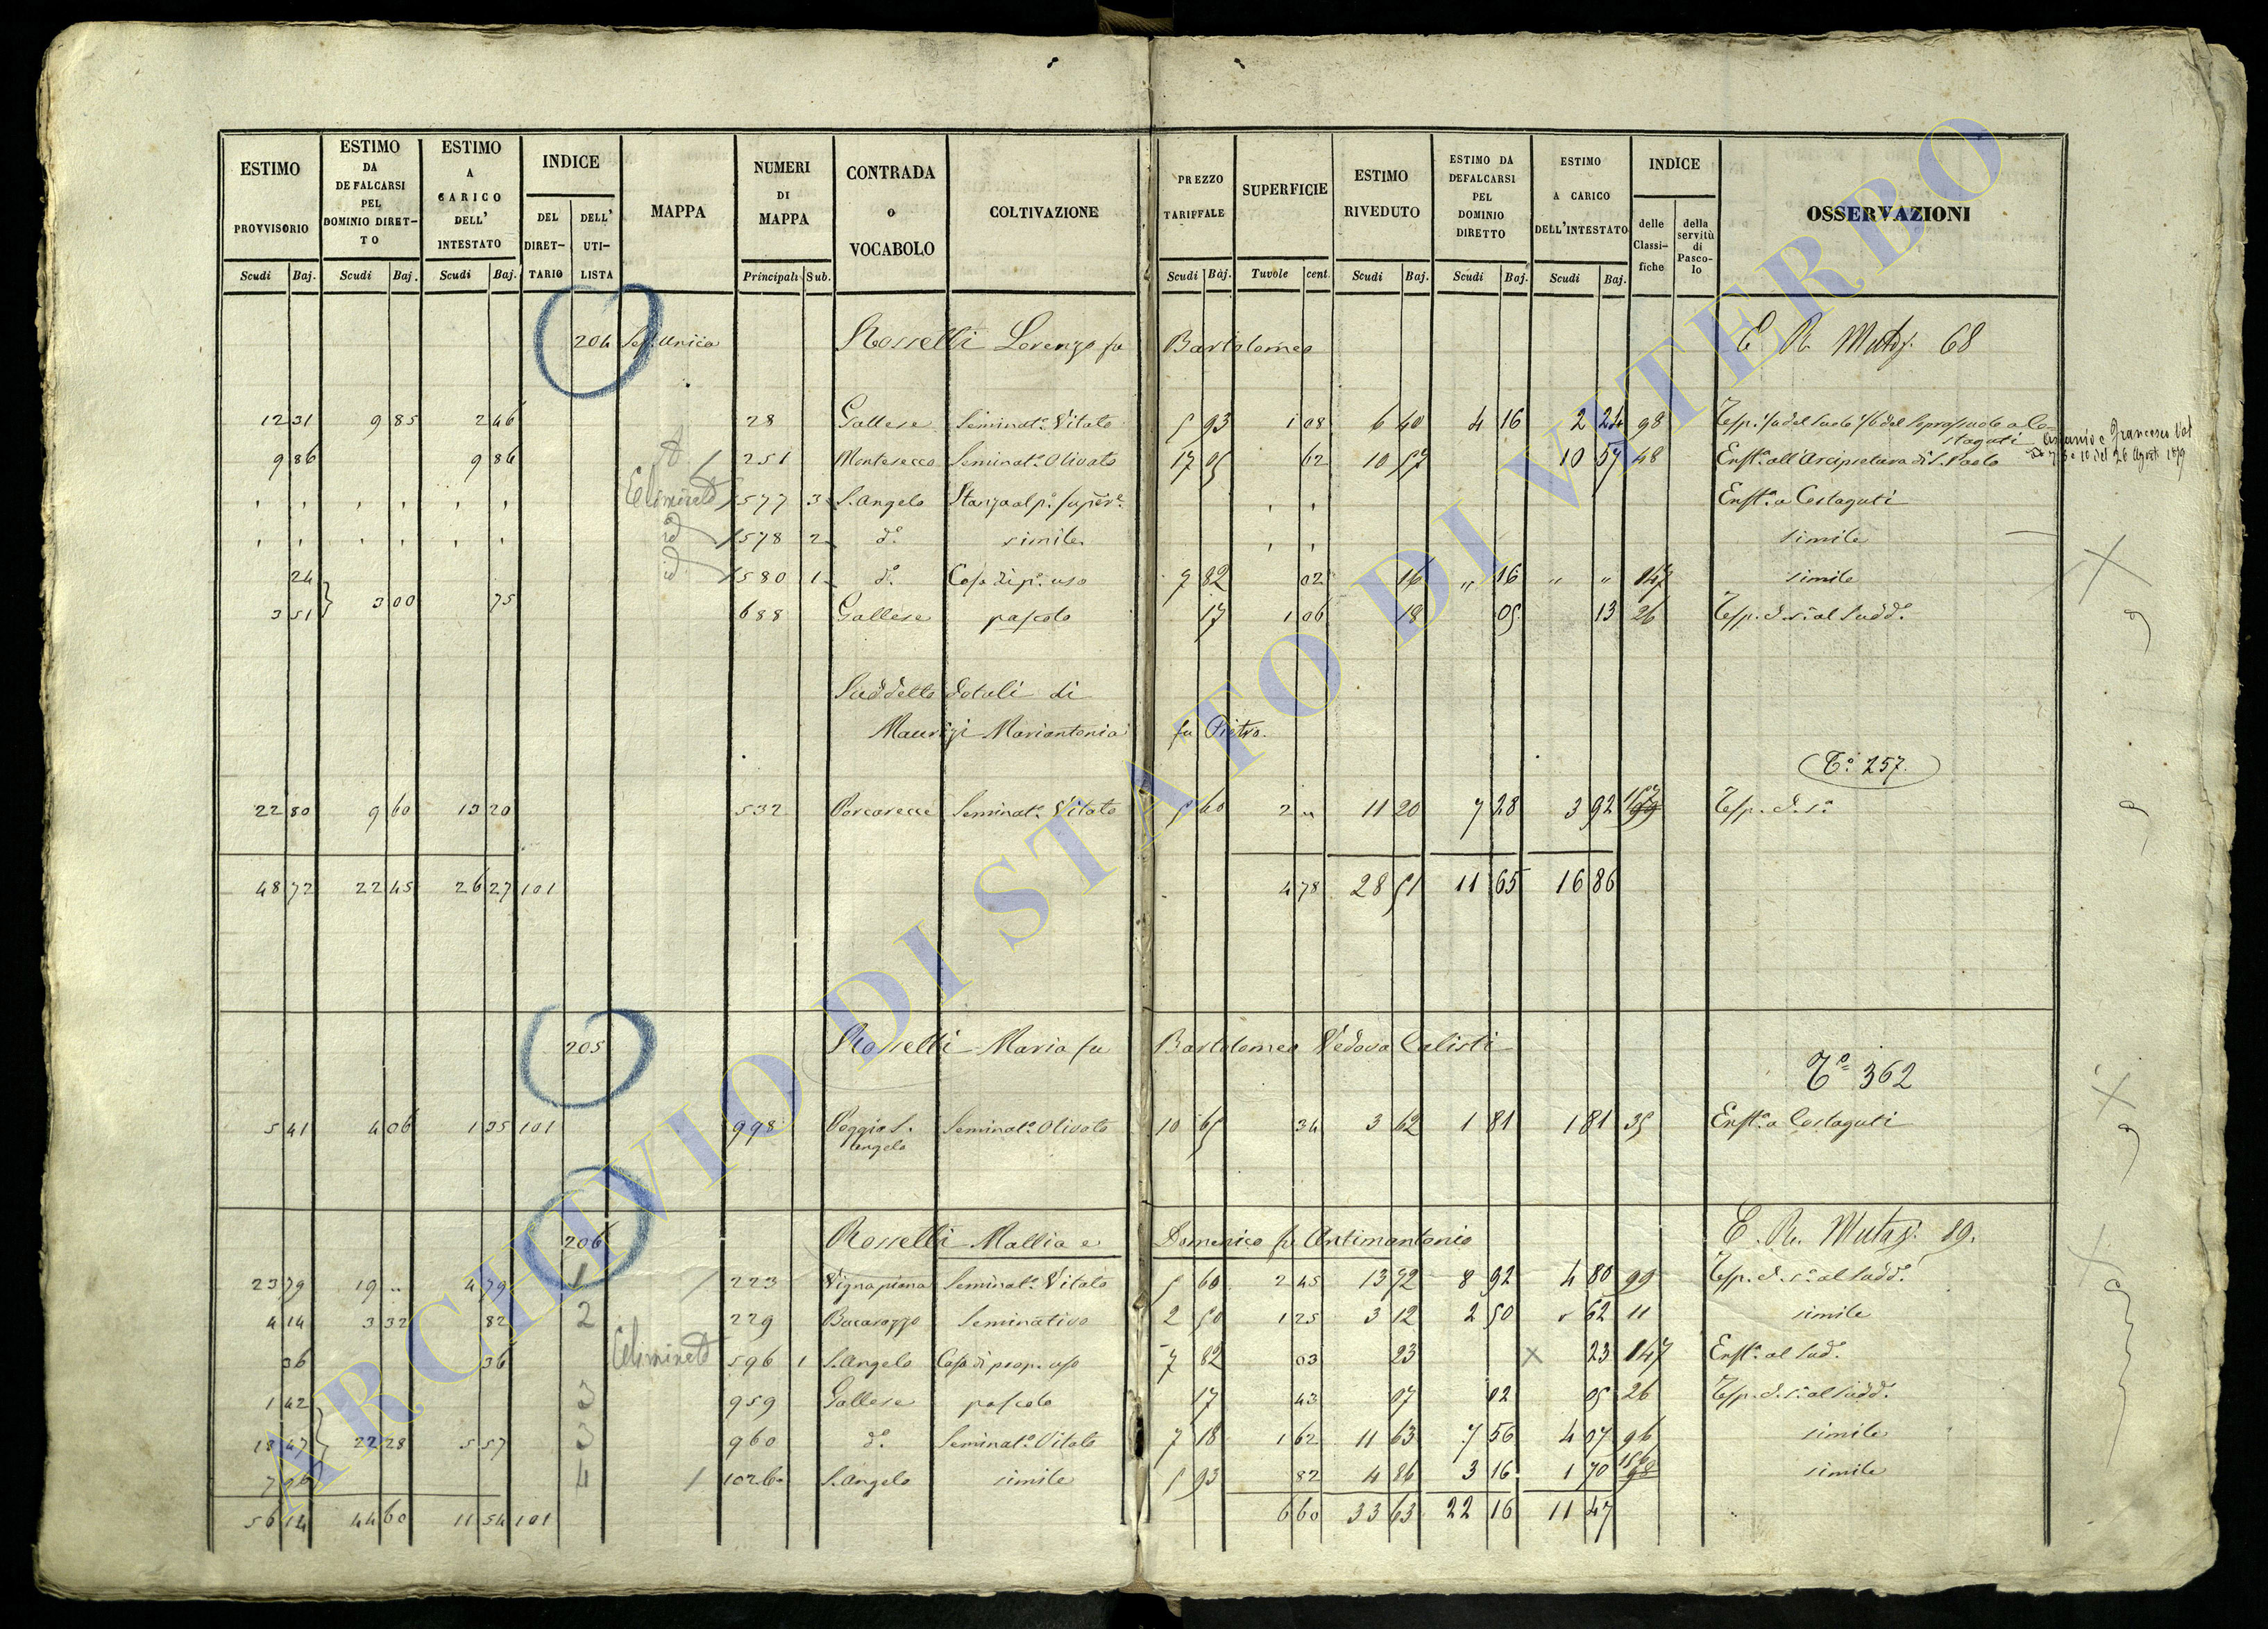 ESTIMO PROVVISORIO Scudi Baj.
ESTIMO DA DEFALCARSI PEL DOMINIO DIRET-TO Scudi Baj.
ESTIMO A CARICO DELL' INTESTATO Scudi Baj.
INDICE DEL DIRET-TARIO DELL' UTI-LISTA
MAPPA
NUMERI DI MAPPA Principali Sub.
CONTRADA o VOCABOLO
COLTIVAZIONE
PREZZO TARIFFALE Scudi Baj.
SUPERFICIE Tuvole cent.
ESTIMO RIVEDUTO Scudi Baj.
ESTIMO DA DEFALCARSI PEL DOMINIO DIRETTO Scudi Baj.
ESTIMO A CARICO DELL'INTESTATO Scudi Baj.
INDICE delle Classi-fiche della servitù di Pasco-lo
OSSERVAZIONI
204 Sez. Unica Rosselli Lorenzo fu Bartolomeo E. R. Mutaz. 68
12 31 9 85 2 46 28 Gallese Seminat.o Vitato 5 93 1 08 6 40 4 16 2 24 98
9 86 9 86 251 Montesecco Seminat.o Olivato 17 05 62 10 57 10 57 48 Enft.a all'Arcipretura di S. Paolo
Eliminato 577 3 S. Angelo Enft.a a Costaguti
578 2 d.o simile simile
24 580 1 d.o Casa di p.o uso 7 82 02 16 " 16 " " 147 simile
3 51 3 00 75 688 Gallese pascolo 17 1 06 18 05 13 26
Suddetto dotali di
Maurizi Mariantonia fu Pietro.
T.o 257.
22 80 9 60 13 20 532 Porcarecce Seminat.o Vitato 5 60 2 " 11 20 7 28 3 92
48 72 22 45 26 27 101 4 78 28 51 11 65 16 86
205 Rosselli Maria fu Bartolomeo Vedova Calisti
T.o 362
5 41 4 06 1 35 101 998 Poggio S. Angelo Seminat.o Olivato 10 65 34 3 62 1 81 1 81 35 Enft.a a Costaguti
206 Rosselli Mallia e Domenico fu Antimantonio E. R. Mutaz. 89.
23 79 19 .. 4 79 1 223 Vignapiana Seminat.o Vitato 5 60 2 45 13 72 8 92 4 80 99
4 14 3 32 82 2 229 Bucarozzo Seminativo 2 50 1 25 3 12 2 50 62 11 simile
36 36 Eliminato 596 1 S. Angelo Casa di prop. uso 7 82 03 23 23 147 Enft.a al sud.o
1 42 3 959 Gallese pascolo 17 43 07 02 05 26
18 47 22 28 5 57 3 960 d.o Seminat.o Vitato 7 18 1 62 11 63 7 56 4 07 96 simile
7 96 4 1026 S. Angelo simile 5 93 82 4 86 3 16 1 70 simile
56 14 44 60 11 54 101 6 60 33 63 22 16 11 47
ARCHIVIO DI STATO DI VITERBO